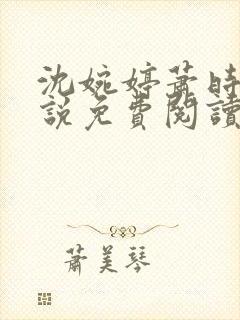 沈婉婷蕭時
說免費閱讀
蕭美琴